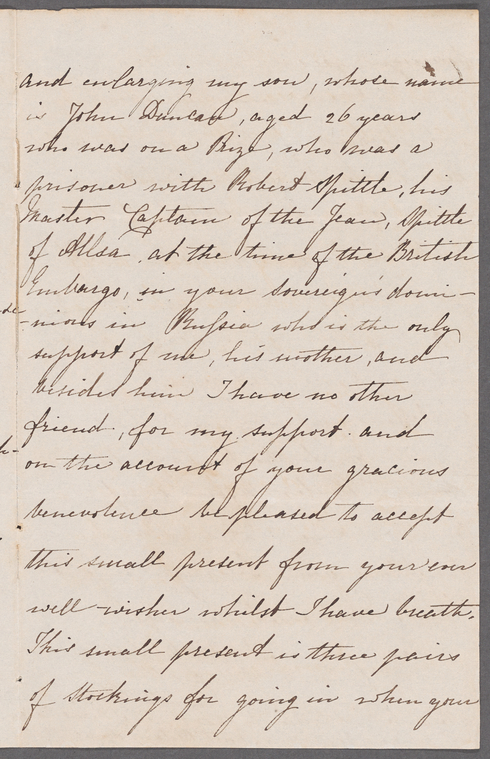 and enlarging my son, whose name
is John Duncan, aged 26 years
who was on a Prize, who was a
prisoner with Robert Spittle, his
Master Captain of the Jean, Spittle
of Alloa, at the time of the British
Embargo, in your Sovereign's domi-
-nions in Russia who is the only
support of me, his mother, and
besides him I have no other
friend, for my support. and
on the account of your gracious
benevolence be pleased to accept
this small present from your ever
well-wisher whilst I have breath.
This small present is three pairs
of stockings for going in when your